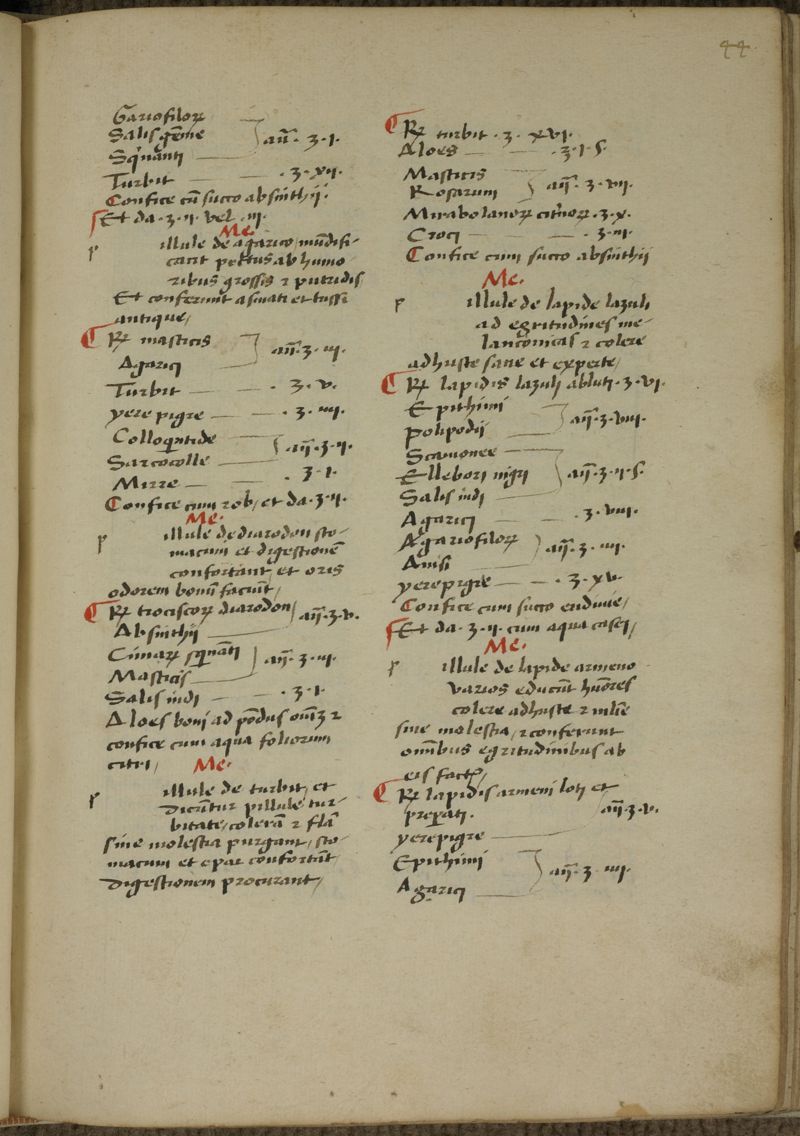 44
Gariofiloꝝ
Salis gēme
Sq̄nanti
añ. ʒ. i.
Turbit . ʒ. xii.
Confice cū succo absinthii.
Et da . ʒ. ii. vel .iii.
Me.
p illule de agarico mūdifi-
cant pectus ab humo
ribus grossis ⁊ putridis
Et conferunt asmati et tussi
antique/
R℞ masticis
Agarici
añ. ʒ. iii.
Turbit . ʒ. v.
yere pigre . ʒ. iiii.
Colloquītide
Sarcocolle
añ. ʒ. ii.
Mirre . ʒ. i.
Confice cum rob/ et da . ʒ. ii.
Me.
p illule de diarodon sto-
macum et digestionē
confortant/ et oris
odorem bonū faciūt/
R℞ trociscoꝝ diarodon
Absinthii
añ. ʒ. v.
Cimaꝝ squinātī
Masticis
añ. ʒ. iii.
Salis indi . ʒ. i.
Aloes boni ad pōdus oīm ⁊
confice cum aqua foliorum
citri/ Me.
p illule de turbit/ et
dicūtur pillule tur-
bitate/ colerā ⁊ flā
sine molestia purgant/ sto-
macum et epar confortāt
digestionem procurant/
R℞ turbit . ʒ. xvi.
Aloes . ʒ. i. s.
Masticis
Rosarum
añ. ʒ. vii.
Mirabolanoꝝ citrīoꝝ . ʒ. x.
Croci . ʒ. iii.
Confice cum succo absinthii
Me.
p illule de lapide lazuli
ad egritudines me-
lanconicas ⁊ colere
adhuste sane et experte/
R℞ lapidis lazuli abluti . ʒ. vi.
Epithimi
Polipodii
añ. ʒ. viii.
Scamonee
Ellebori nigri
Salis indi
añ. ʒ. ii. s.
Agarici . ʒ. viii.
Agariofiloꝝ
Anisi
añ. ʒ. iiii.
yerepigre . ʒ. xv.
Confice cum succo enduuie/
Et da . ʒ. ii. cum aqua casei/
Me.
p illule de lapide armeno
varios educūt hūores
colere adhuste ⁊
sine molestia/ ⁊ conferunt
omībus egritudinibus ab
eis factꝭ/
R℞ lapidis armeni loti et
preparati .
yerepigre
añ. ʒ. v.
Epithimi
Agarici
añ. ʒ. iiii.